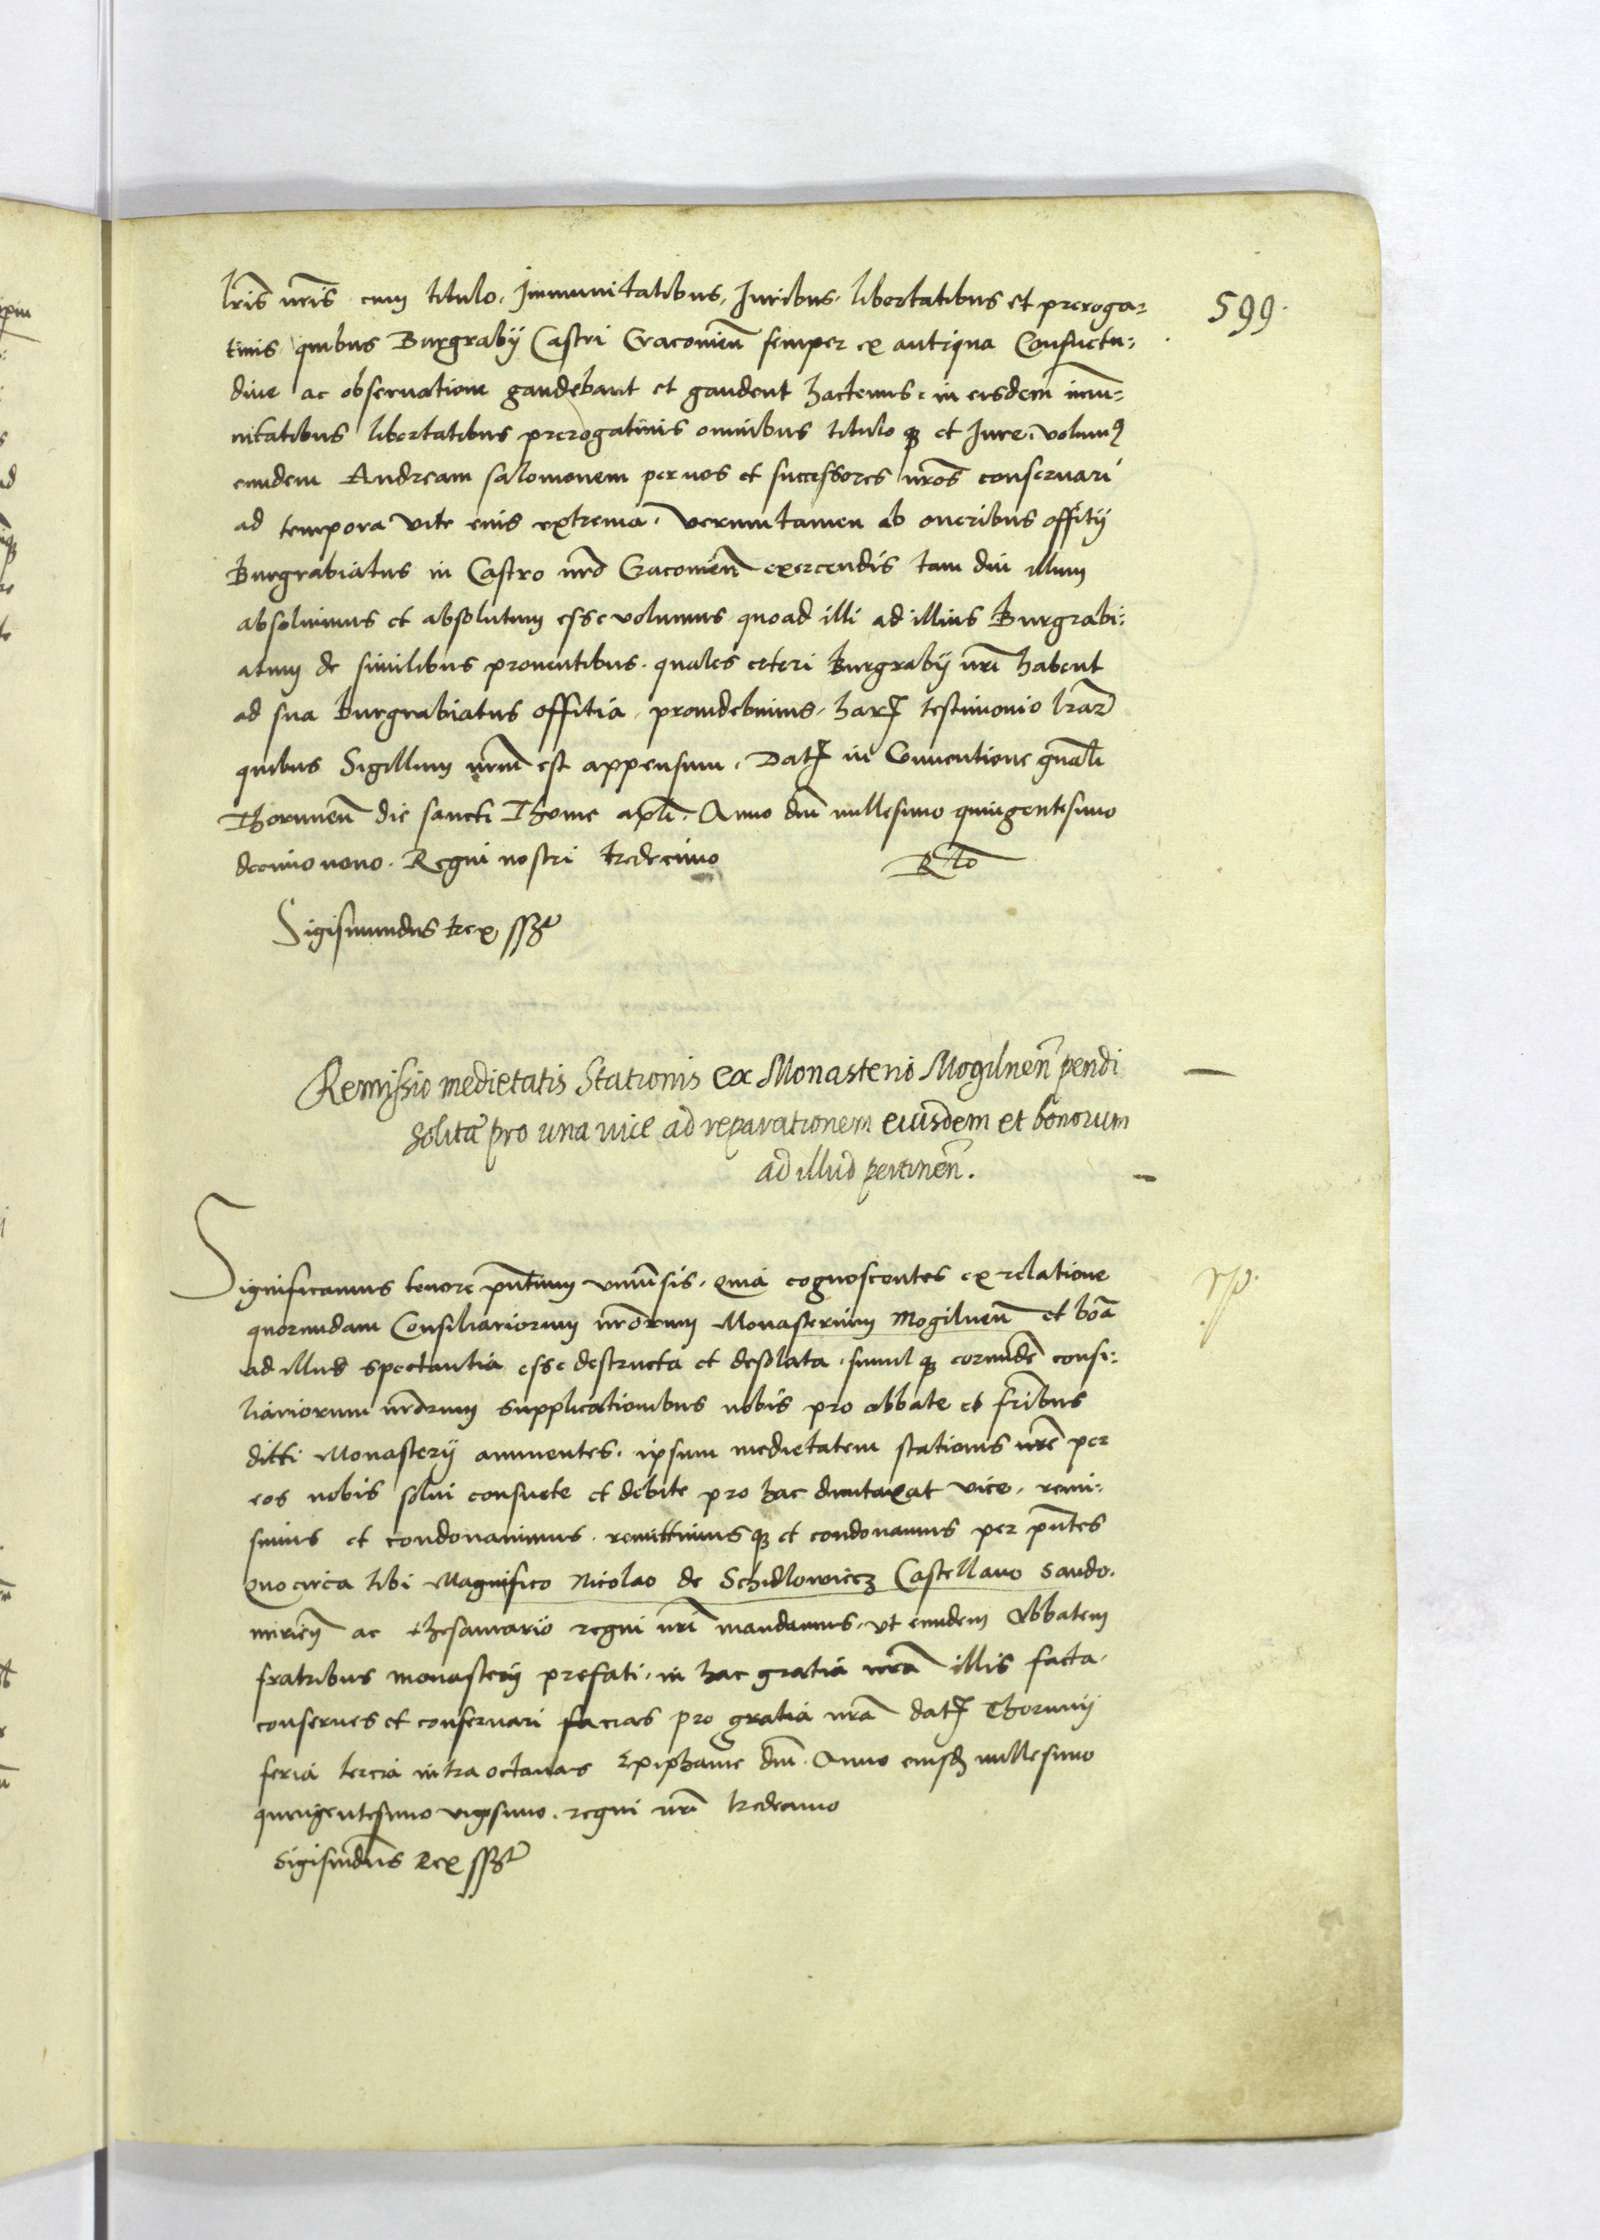 599.
l̃ris nr̃is cum titulo, Immunitatibus, Iuribus, libertatibus et preroga-
tiuis quibus Burgrabij Castri Cracouien̄ semper ex antiqua Consuetu-
dine ac obseruatione gaudebant et gaudent hactenus, in eisdem im̄u-
nitatibus libertatibus prerogatiuis omnibus titulo qȝ et Iure, volumꝰ
eundem Andream salomonem per nos et successores nr̃os conseruari
ad tempora vite eius extrema, verumtamen ab oneribus offitij
Burgrabiatus in Castro nr̃o Cracouien̄ exercendis tam diu illum
absoluimus et absolutum esse volumus quoad illi ad illius Burgrabi-
atum de similibus prouentibus, quales ceteri Burgrabij nr̃i habent
ad sua Burgrabiatus offitia, prouidebimus, harꝝ testimonio l̃rarꝝ
quibus Sigillum nr̃um est appensum, Datꝝ in Conuentione gn̄ali
Thorunien̄ die sancti Thome apl̃i, Anno dn̄i millesimo quingentesimo
decimonono, Regni nostri tredecimo Rl̃o
Sigismundus Rex sszt
Remissio medietatis Stationis ex Monasterio Mogilnen̄ pendi
Solitæ pro una uice ad reparationem eiusdem et bonorum
ad illud pertinen̄.
Significamus tenore pn̄tium vniu͂sis, Quia cognoscentes ex relatione
quorundam Consiliariorum nr̃orum Monasterium Mogilnen̄ et bōa
ad illud spectantia esse destructa et desolata, simul qȝ eorundē consi-
liariorum nr̃orum supplicationibus nobis pro abbate et fr̃ibus
dicti Monasterij annuentes, ipsum medietatem stationis nr̃e per
eos nobis solui consuete et debite pro hac dumtaxat vice, remi-
simus et condonauimus, remittimus qȝ et condonamus per pn̄tes
Quocirca tibi Magnifico Nicolao de Schidlowiecz Castellano Sando-
mirien̄ ac thesaurario regni nr̃i mandamus, vt eundem Abbatem
fratribus monasterij prefati, in hac gratia nr̃a illis facta,
conserues et conseruari facias pro gratia nr̃a datꝝ Thorunij
feria tercia intra octauas Epiphanie dn̄i Anno eiusd̄ millesimo
quingentesimo vigesimo, regni nr̃i tredecimo
Sigismūdus Rex sszt